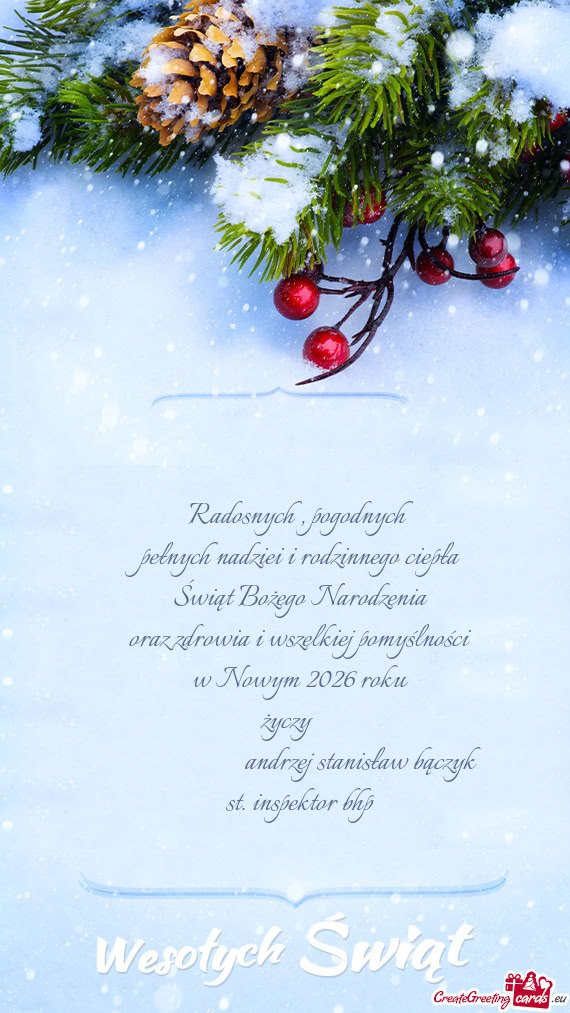 Radosnych , pogodnych
pełnych nadziei i rodzinnego ciepła
Świąt Bożego Narodzenia
oraz zdrowia i wszelkiej pomyślności
w Nowym 2026 roku
życzy
andrzej stanisław bączyk
st. inspektor bhp
Wesołych Świąt
CreateGreeting cards .eu